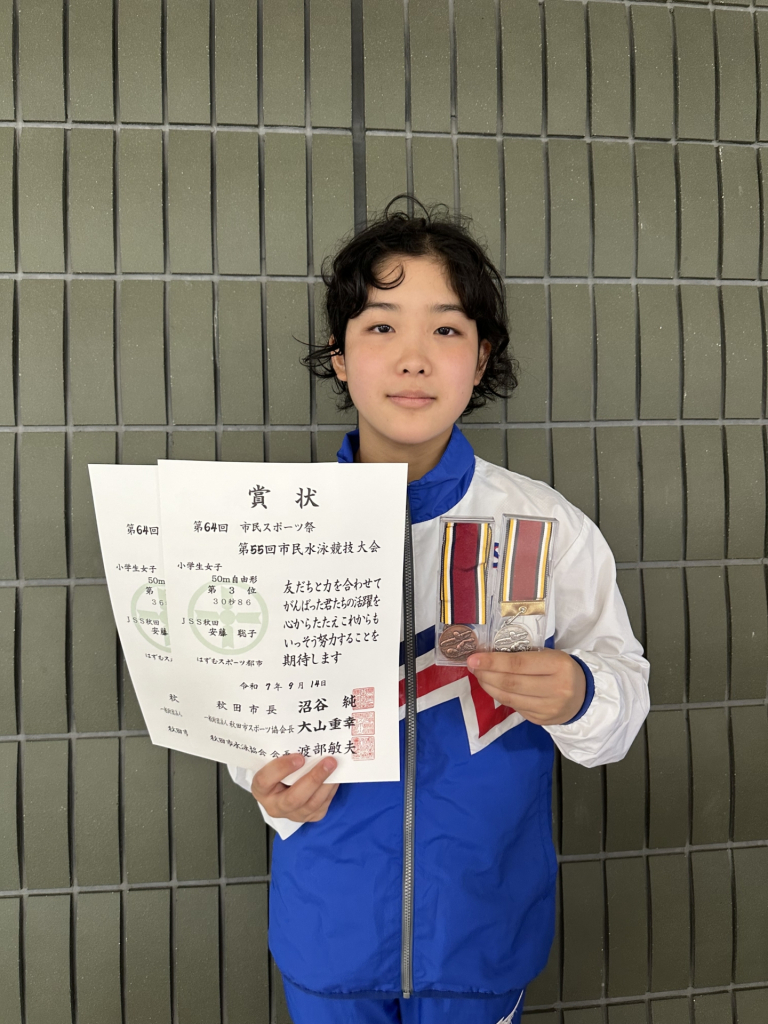 賞状
第64回 市民スポーツ祭
第55回市民水泳競技大会
小学生女子
50m自由形
第 3 位
30秒86
JSS秋田
安藤 聡子
友だちと力を合わせて
がんばった君たちの活躍を
心からたたえこれからも
いっそう努力することを
期待します
はずむスポーツ都市
令和 7年 9月 14日
秋田市長 沼谷 純
一般財団法人 秋田市スポーツ協会長 大山重幸
秋田市水泳協会 会長 渡部敏夫
第64回
小学生女子
50m
36
JSS秋田
安藤
はずむス
秋
一般財団法人
秋田市